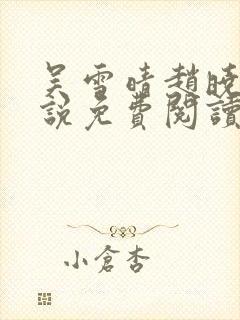 吴雪晴趙曉
說免費閱讀
小倉杏